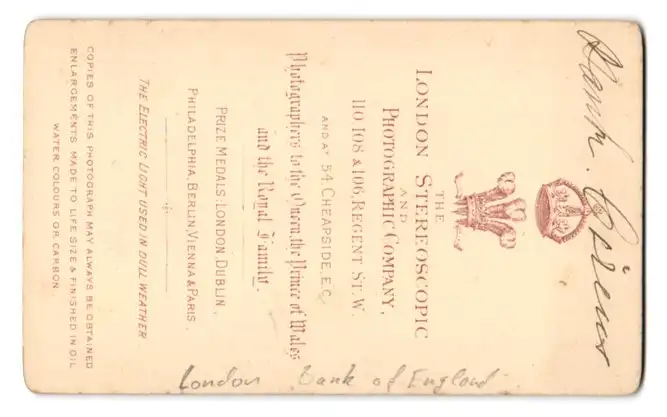 THE
LONDON STEREOSCOPIC
AND
PHOTOGRAPHIC COMPANY,
110, 108 & 106, REGENT ST. W.
AND AT 54, CHEAPSIDE, E.C.
Photographers to the Queen, the Prince of Wales
and the Royal Family.
PRIZE MEDALS: LONDON, DUBLIN.
PHILADELPHIA, BERLIN, VIENNA & PARIS.
THE ELECTRIC LIGHT USED IN DULL WEATHER
COPIES OF THIS PHOTOGRAPH MAY ALWAYS BE OBTAINED
ENLARGEMENTS MADE TO LIFE SIZE & FINISHED IN OIL
WATER COLOURS OR CARBON
London Bank of England